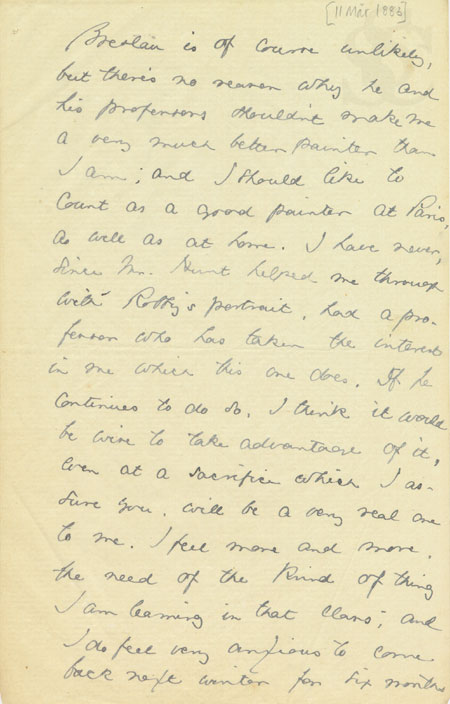 [11 Mar 1883]
Breslau is of course unlikely,
but there's no reason why he and
his professors shouldn't make me
a very much better painter than
I am; and I should like to
count as a good painter at Paris,
as well as at home. I have never,
since Mr. Hunt helped me through
with Robby's portrait, had a pro-
fessor who has taken the interest
in me which this one does. If he
continues to do so, I think it would
be wise to take advantage of it,
even at a sacrifice which I as-
sure you, will be a very real one
to me. I feel more and more,
the need of the kind of thing
I am learning in that class; and
I do feel very anxious to come
back next winter for six months